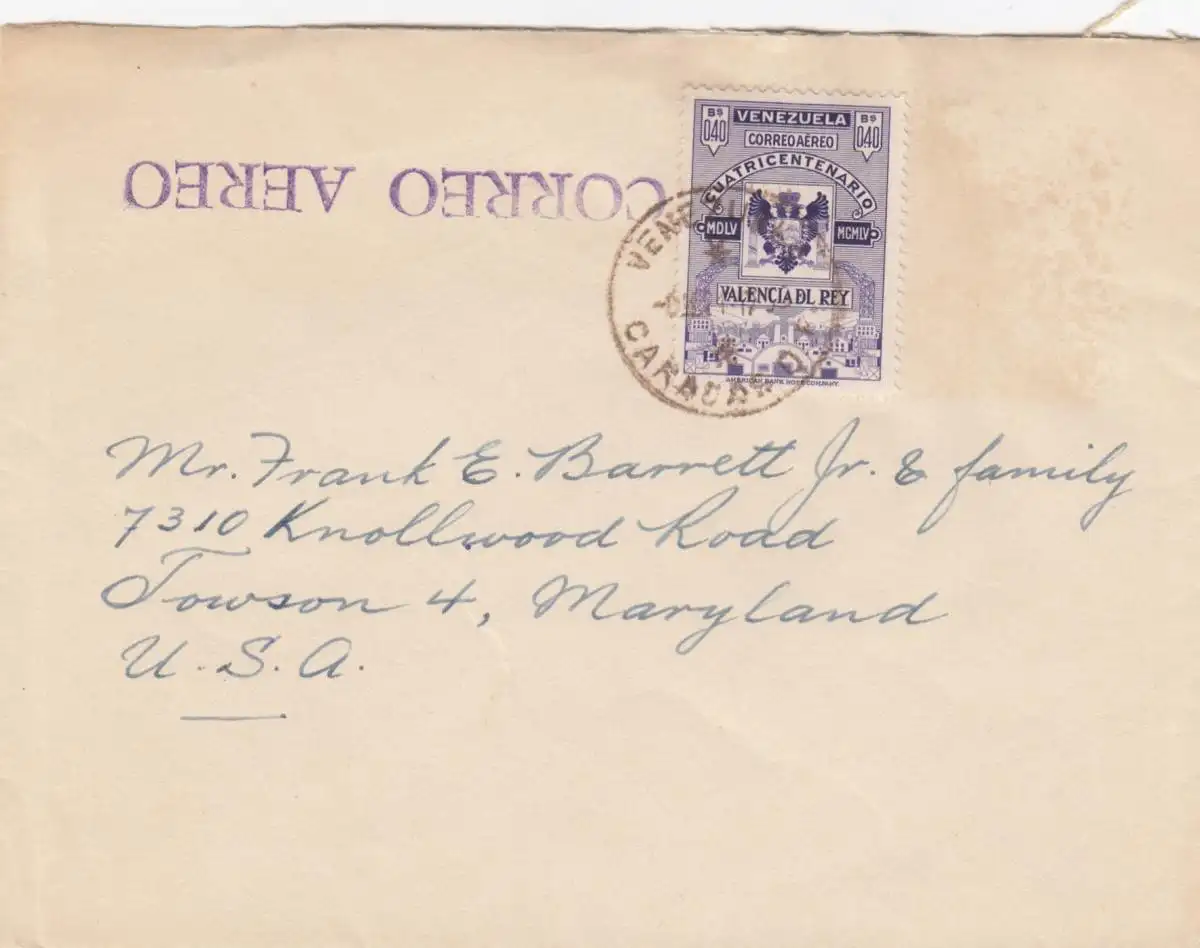 Bs 0.40 VENEZUELA Bs 0.40
CORREO AÉREO
CUATRICENTENARIO
MDLV MCMLV
VALENCIA DL REY
AMERICAN BANK NOTE COMPANY
CORREO AEREO
CARACAS
Mr. Frank E. Barrett Jr. & family
7310 Knollwood Road
Towson 4, Maryland
U.S.A.